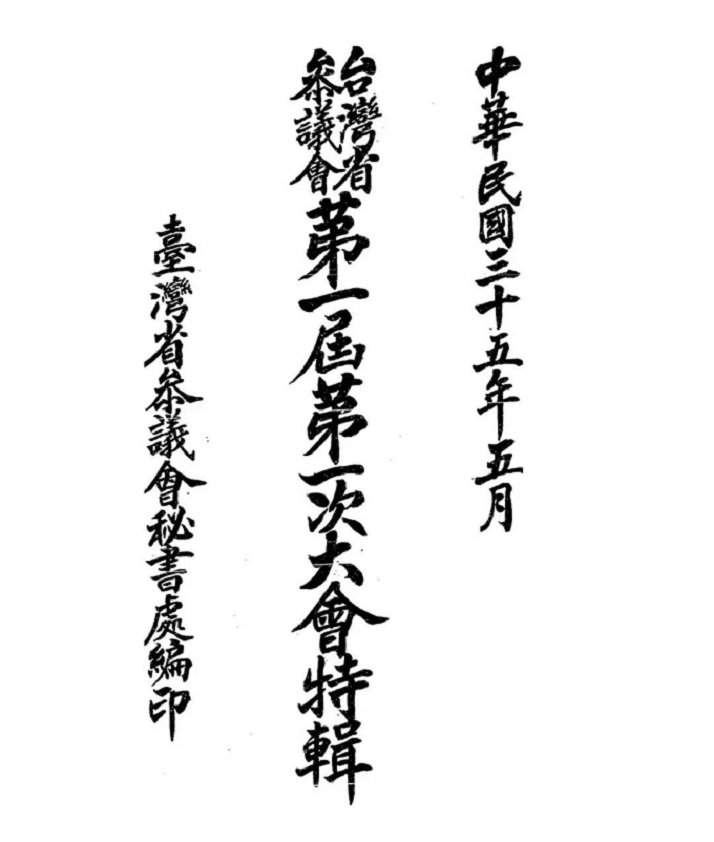 中華民國三十五年五月
台灣省
參議會
第一屆第一次大會特輯
臺灣省參議會秘書處編印